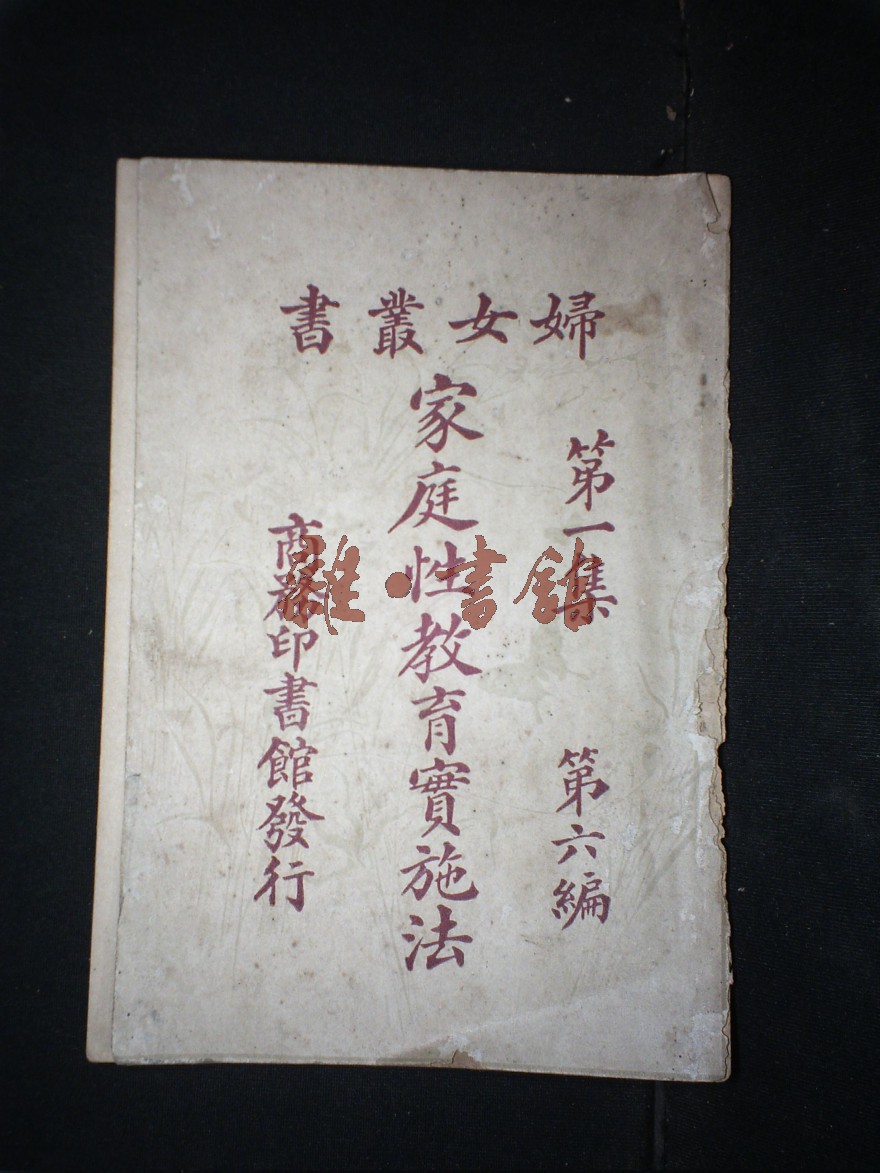 婦女叢書
第一集 第六編
家庭性教育實施法
商務印書館發行
雒·書館